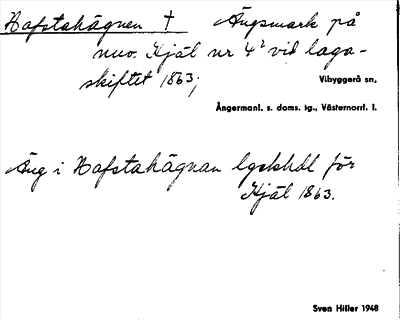 Hafstahägnen † Ängsmark på
nuv. Hjäl nr 4² vid laga-
skiftet 1863;
Vibyggerå sn,
Ångermanl. s. doms. tg., Västernorrl. l.
Äng i Hafstahägnan lgskhdl för
Hjäl 1863.
Sven Hitler 1948